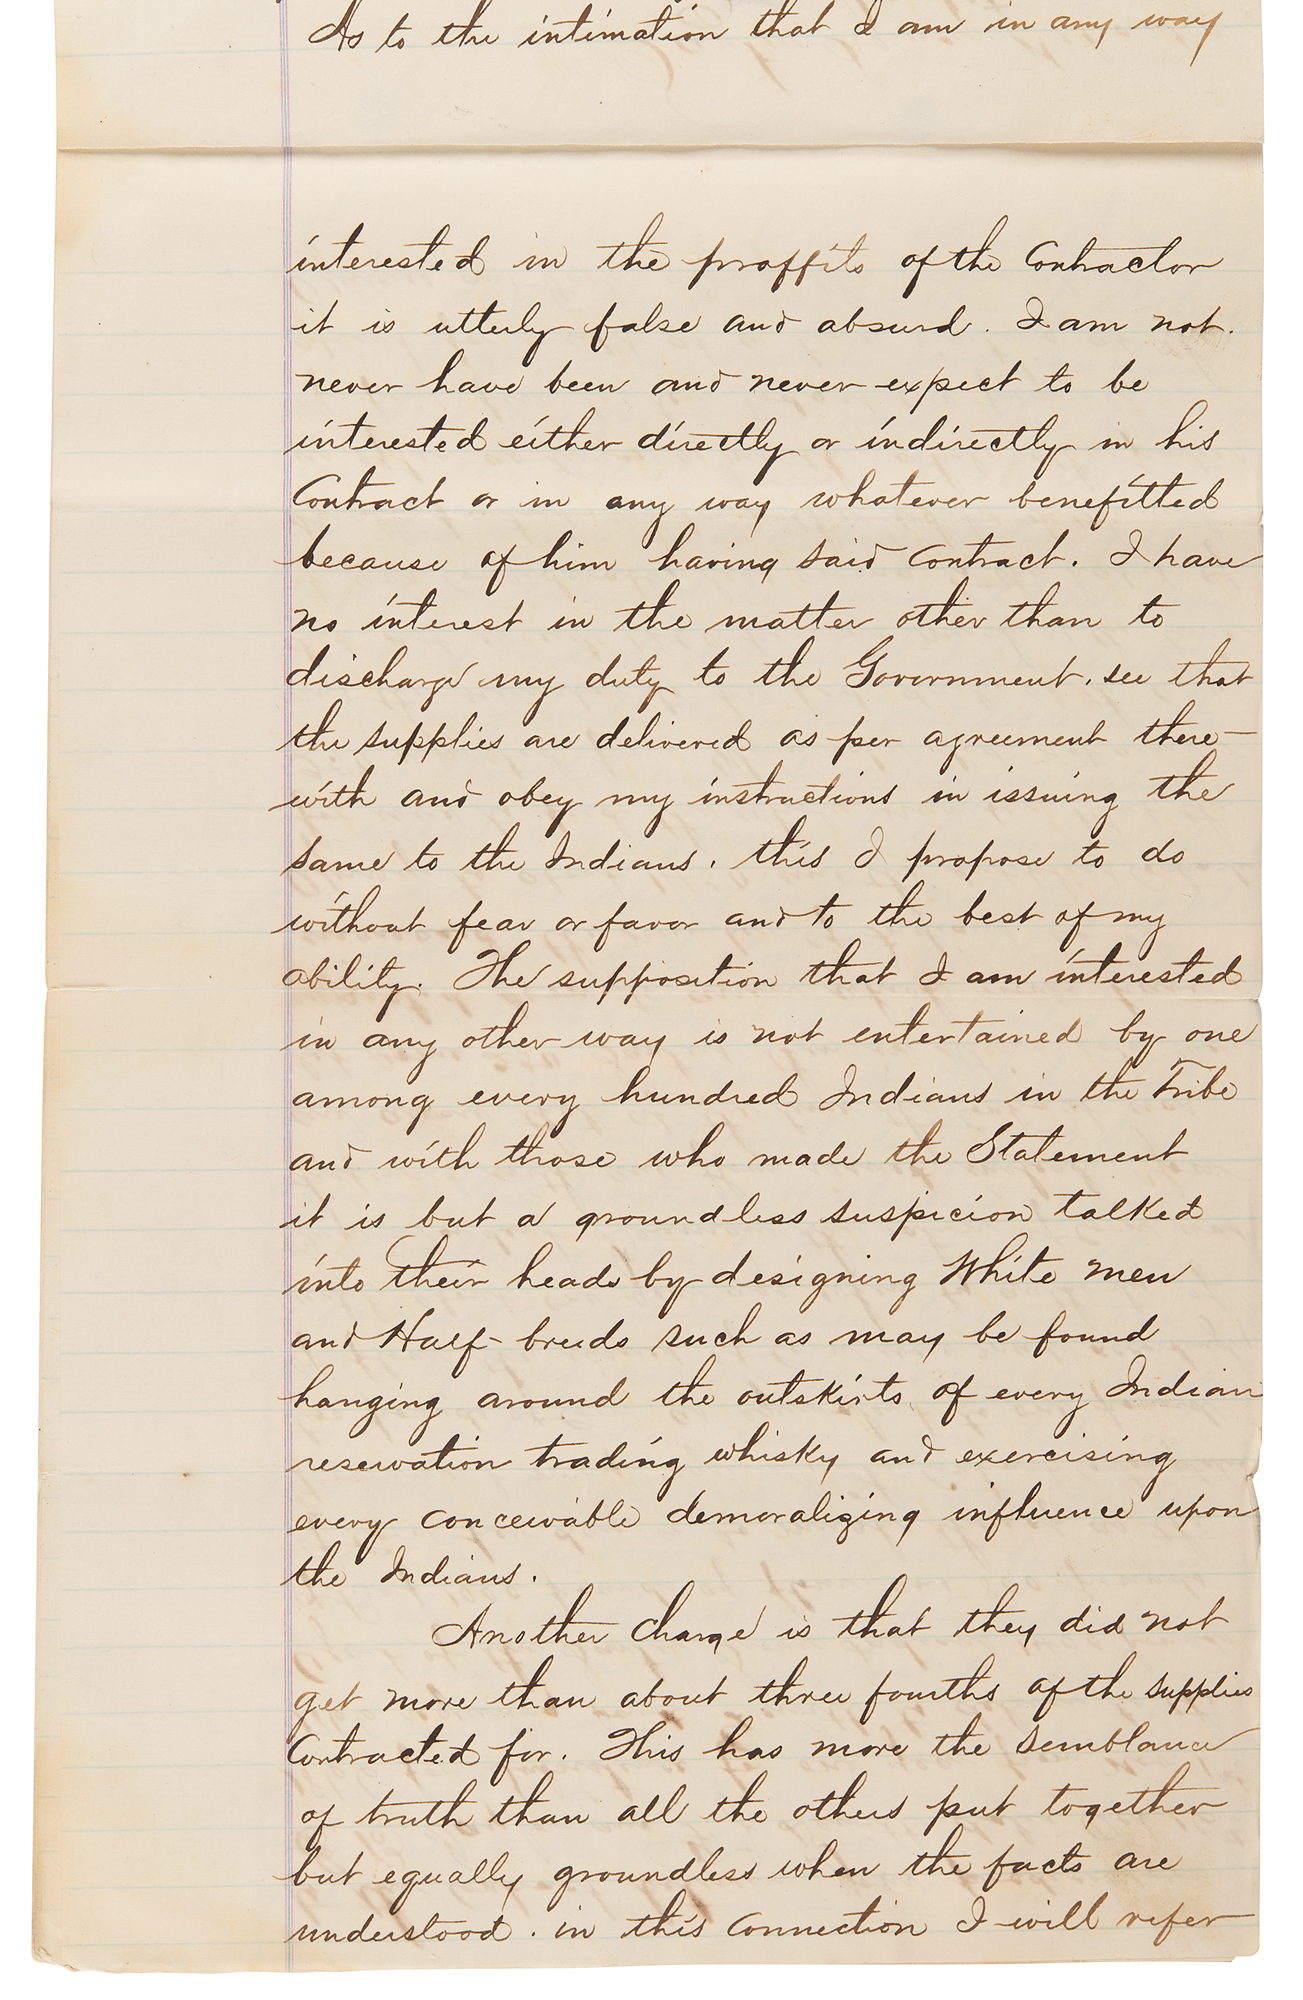 As to the intimation that I am in any way
interested in the proffits of the Contractor
it is utterly false and absurd. I am not.
never have been and never expect to be
interested either directly or indirectly in his
Contract or in any way whatever benefitted
because of him having said Contract. I have
no interest in the matter other than to
discharge my duty to the Government. see that
the supplies are delivered as per agreement there-
with and obey my instructions in issuing the
same to the Indians. this I propose to do
without fear or favor and to the best of my
ability. The supposition that I am interested
in any other way is not entertained by one
among every hundred Indians in the Tribe
and with those who made the Statement
it is but a groundless suspicion talked
into their heads by designing White men
and Half-breeds such as may be found
hanging around the outskirts of every Indian
reservation trading whisky and exercising
every conceivable demoralizing influence upon
the Indians.
Another charge is that they did not
get more than about three fourths of the supplies
Contracted for. This has more the semblance
of truth than all the others put together
but equally groundless when the facts are
understood. in this Connection I will refer